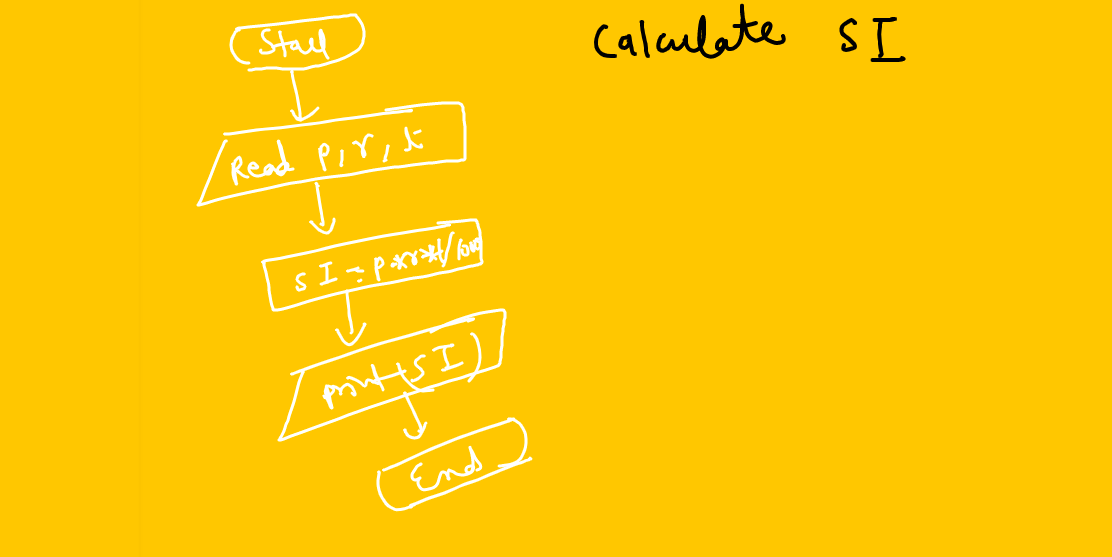 Calculate SI
Start
Read p, r, t
SI = p*r*t/100
print(SI)
End